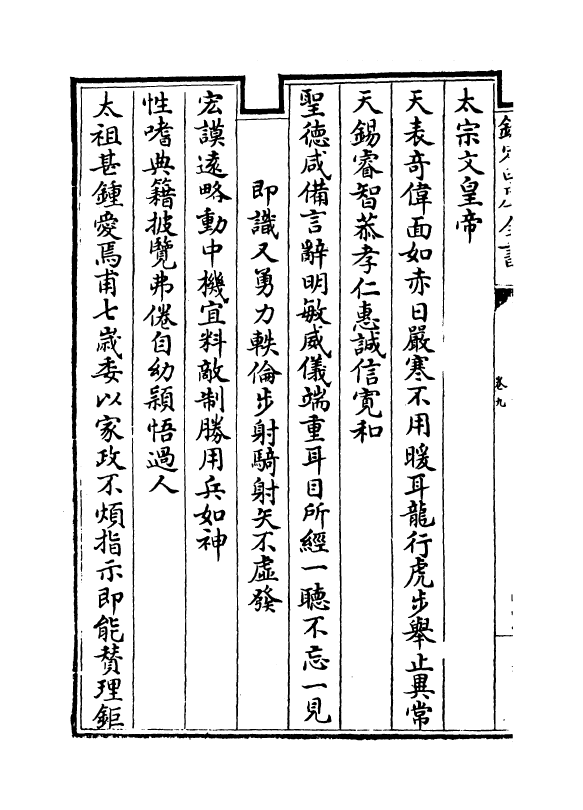 卷九
太宗文皇帝
天表奇偉面如赤日嚴寒不用暖耳龍行虎步舉止異常
天錫睿智恭孝仁惠誠信寛和
聖德咸備言辭明敏威儀端重耳目所經一聽不忘一見
即識又勇力軼倫步射騎射矢不虛發
宏謨遠略動中機宜料敵制勝用兵如神
性嗜典籍披覽弗倦自幼穎悟過人
太祖甚鍾愛焉甫七歳委以家政不煩指示即能賛理鉅